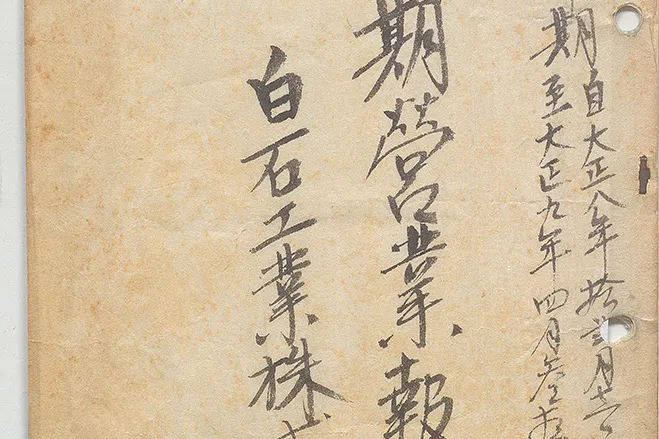 期
自大正八年拾弐月壱
至大正九年四月参拾
期營業報
白石工業株